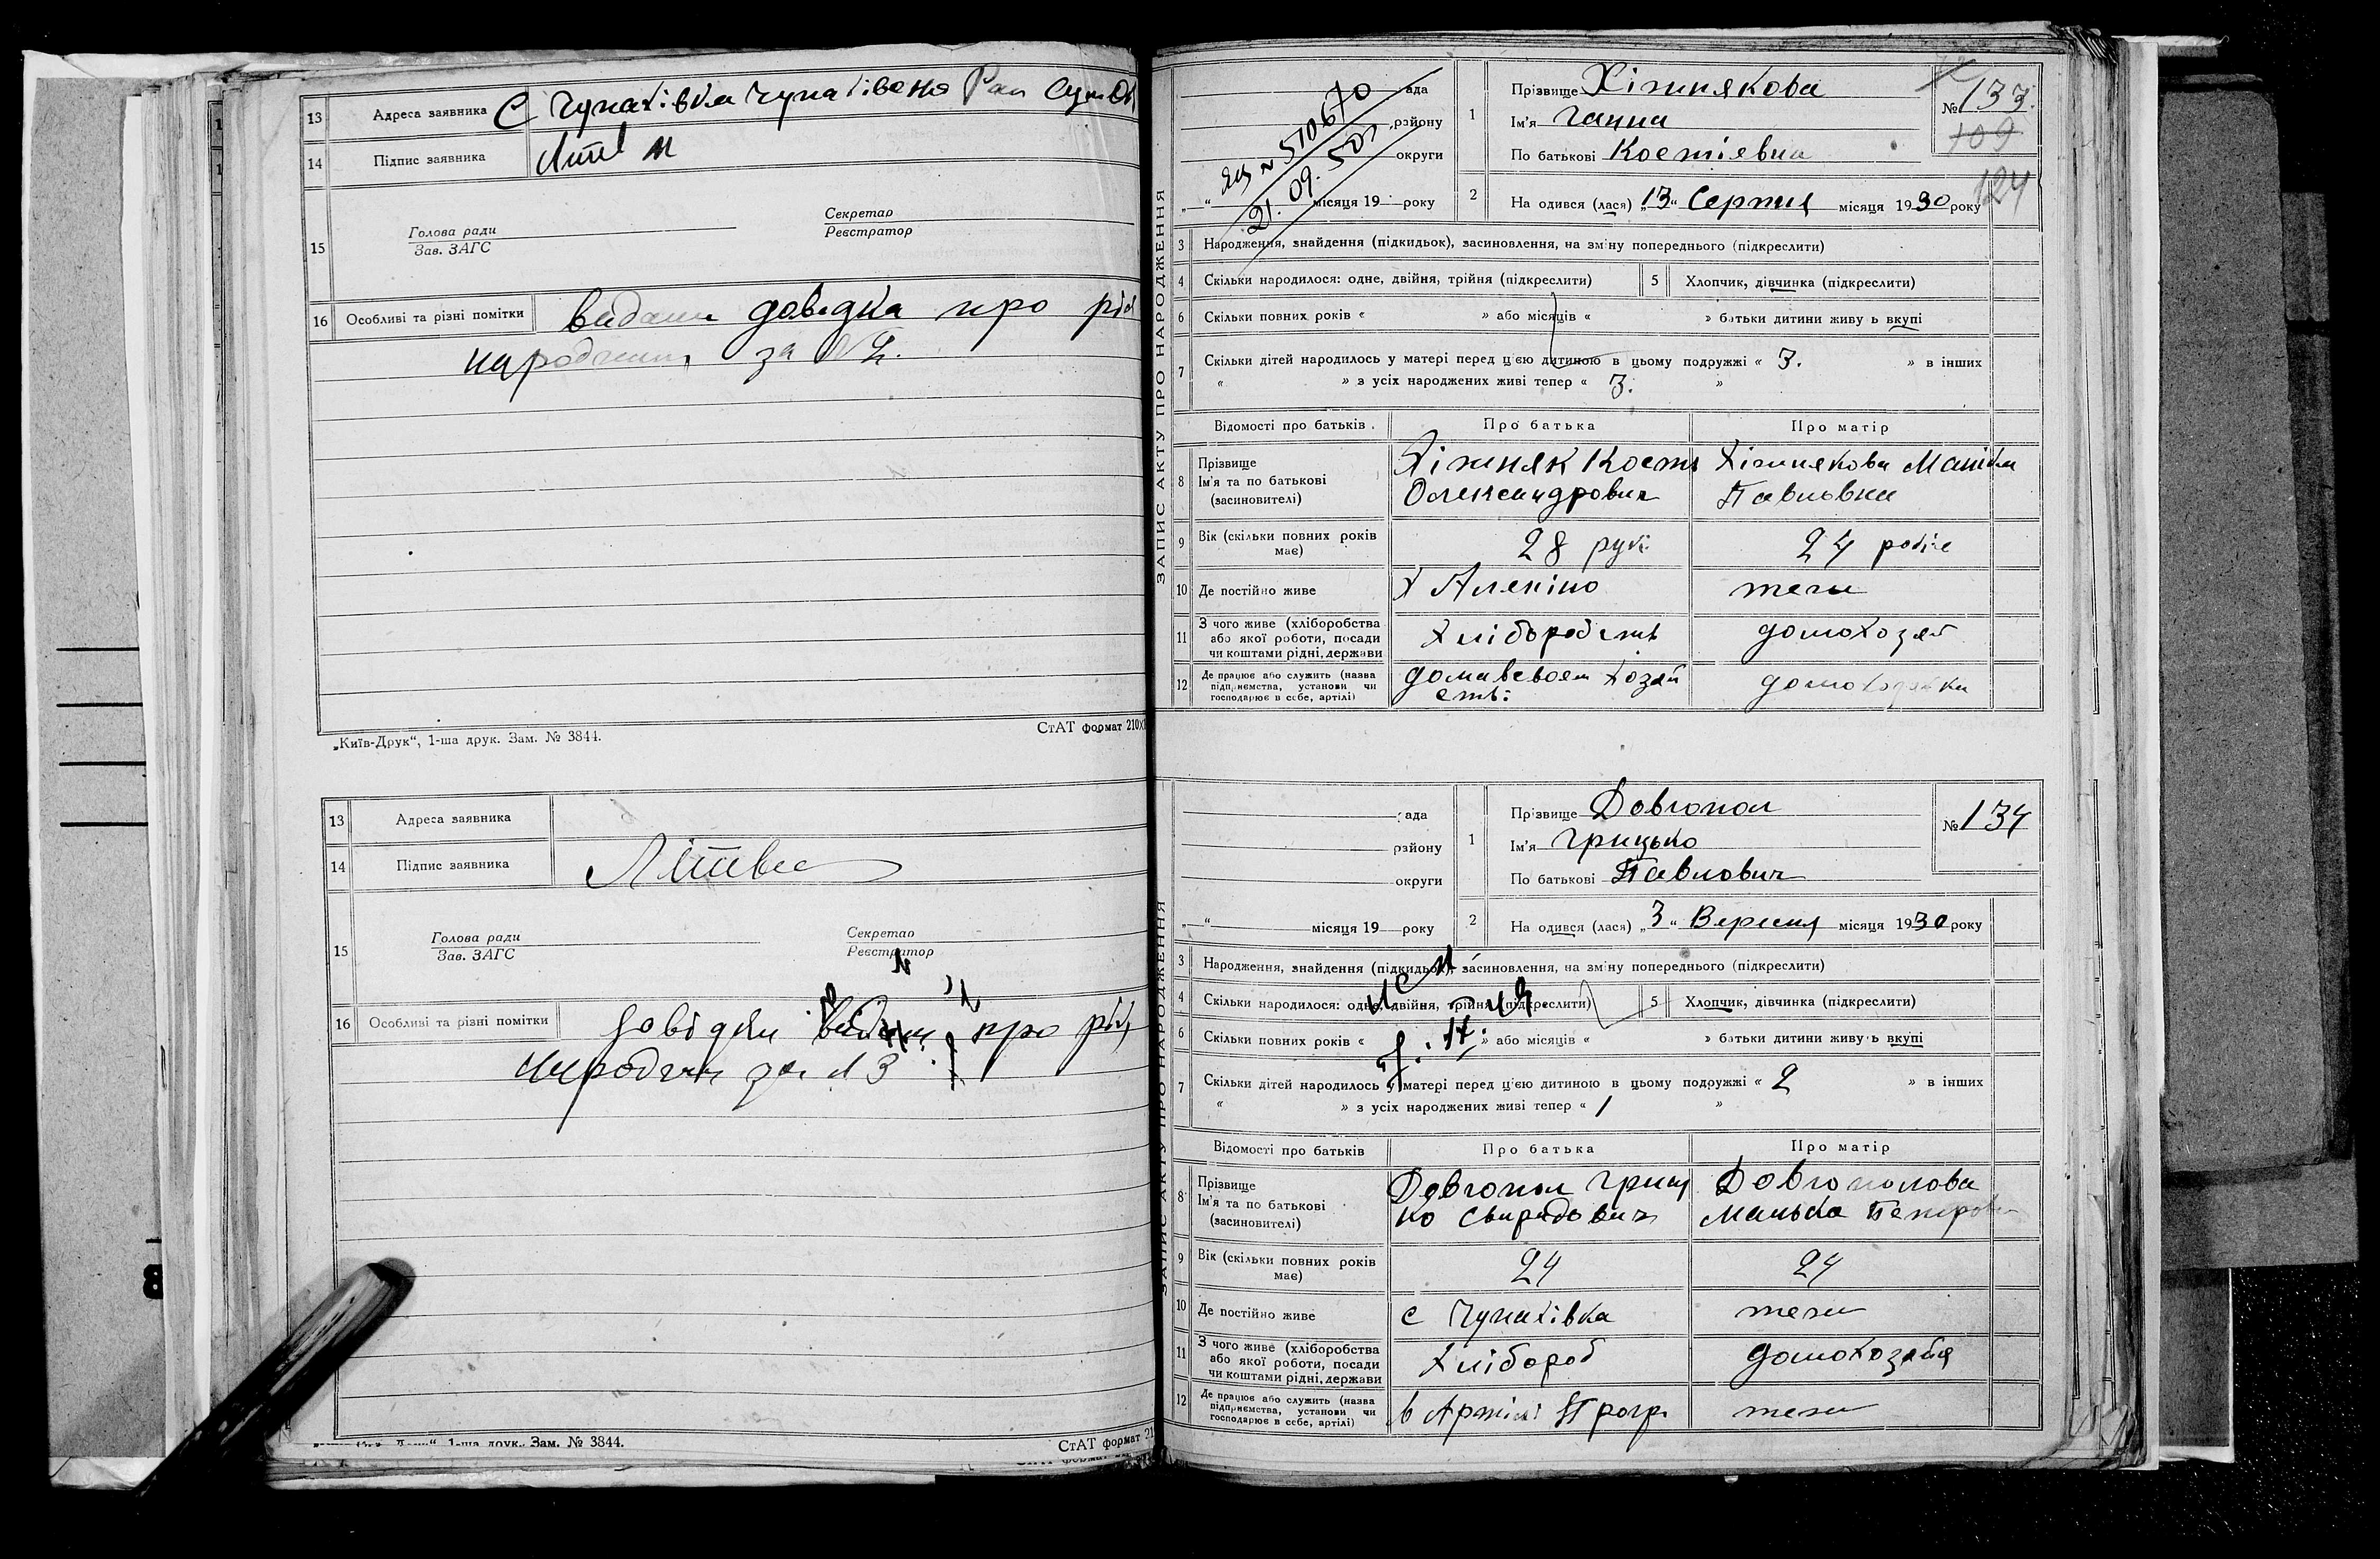 13 Адреса заявника С Чупахівка Чупахівсно Рай Сум Ок
14 Підпис заявника
Секретар
Реєстратор
15 Голова ради
Зав. ЗАГС
16 Особливі та різні помітки видана довідка про
за №2.
„Київ-Друк“, 1-ша друк. Зам. № 3844.
СтАТ формат
13 Адреса заявника
14 Підпис заявника Літвин
Секретар
Реєстратор
15 Голова ради
Зав. ЗАГС
16 Особливі та різні помітки довідка видана про
за № 3
1-ша друк. Зам. № 3844.
СтАТ формат
ЗАПИС АКТУ ПРО НАРОДЖЕННЯ
ада
району
округи
„ “ місяця 19 року
510670
21.09.50
1 Прізвище Хіжнякова
Ім'я Ганна
По батькові Костієвна
№ 133.
109
124
2 На одився (лася) „13“ Серпня місяця 1930 року
3 Народження, знайдення (підкидьок), засиновлення, на зміну попереднього (підкреслити)
4 Скільки народилося: одне, двійня, трійня (підкреслити) 5 Хлопчик, дівчинка (підкреслити)
6 Скільки повних років « » або місяців « » батьки дитини живу ь вкупі
7 Скільки дітей народилось у матері перед цією дитиною в цьому подружжі « 3. » в інших
« » з усіх народжених живі тепер « 3. »
Відомості про батьків Про батька Про матір
8 Прізвище Хіжняк Кость Хіжнякова
Ім'я та по батькові
(засиновителі) Олександрович Павловна
9 Вік (скільки повних років має) 28 24
10 Де постійно живе Х Алекіно теж
11 З чого живе (хліборобства або якої роботи, посади чи коштами рідні, держави Хліборобств домохозяй
12 Де працює або служить (назва підприємства, установи чи господарює в себе, артілі) дома в своем хозяй домохозяйка
ств:
ЗАПИС АКТУ ПРО НАРОДЖЕННЯ
ада
району
округи
„ “ місяця 19 року
1 Прізвище Довгопол
Ім'я Грицько
По батькові Павлович
№ 134
2 На одився (лася) „3“ Вересня місяця 1930 року
3 Народження, знайдення (підкидьок), засиновлення, на зміну попереднього (підкреслити)
4 Скільки народилося: одне, двійня, трійня (підкреслити) 5 Хлопчик, дівчинка (підкреслити)
6 Скільки повних років « » або місяців « » батьки дитини живу ь вкупі
7 Скільки дітей народилось у матері перед цією дитиною в цьому подружжі « 2 » в інших
« » з усіх народжених живі тепер « 1 »
Відомості про батьків Про батька Про матір
8 Прізвище Довгопол Гриць Довгополова
Ім'я та по батькові
(засиновителі) ко Свиридович Манька
9 Вік (скільки повних років має) 24 24
10 Де постійно живе с Чупахівка теж
11 З чого живе (хліборобства або якої роботи, посади чи коштами рідні, держави Хлібороб домохозяйка
12 Де працює або служить (назва підприємства, установи чи господарює в себе, артілі) в Артілі Прогр теж